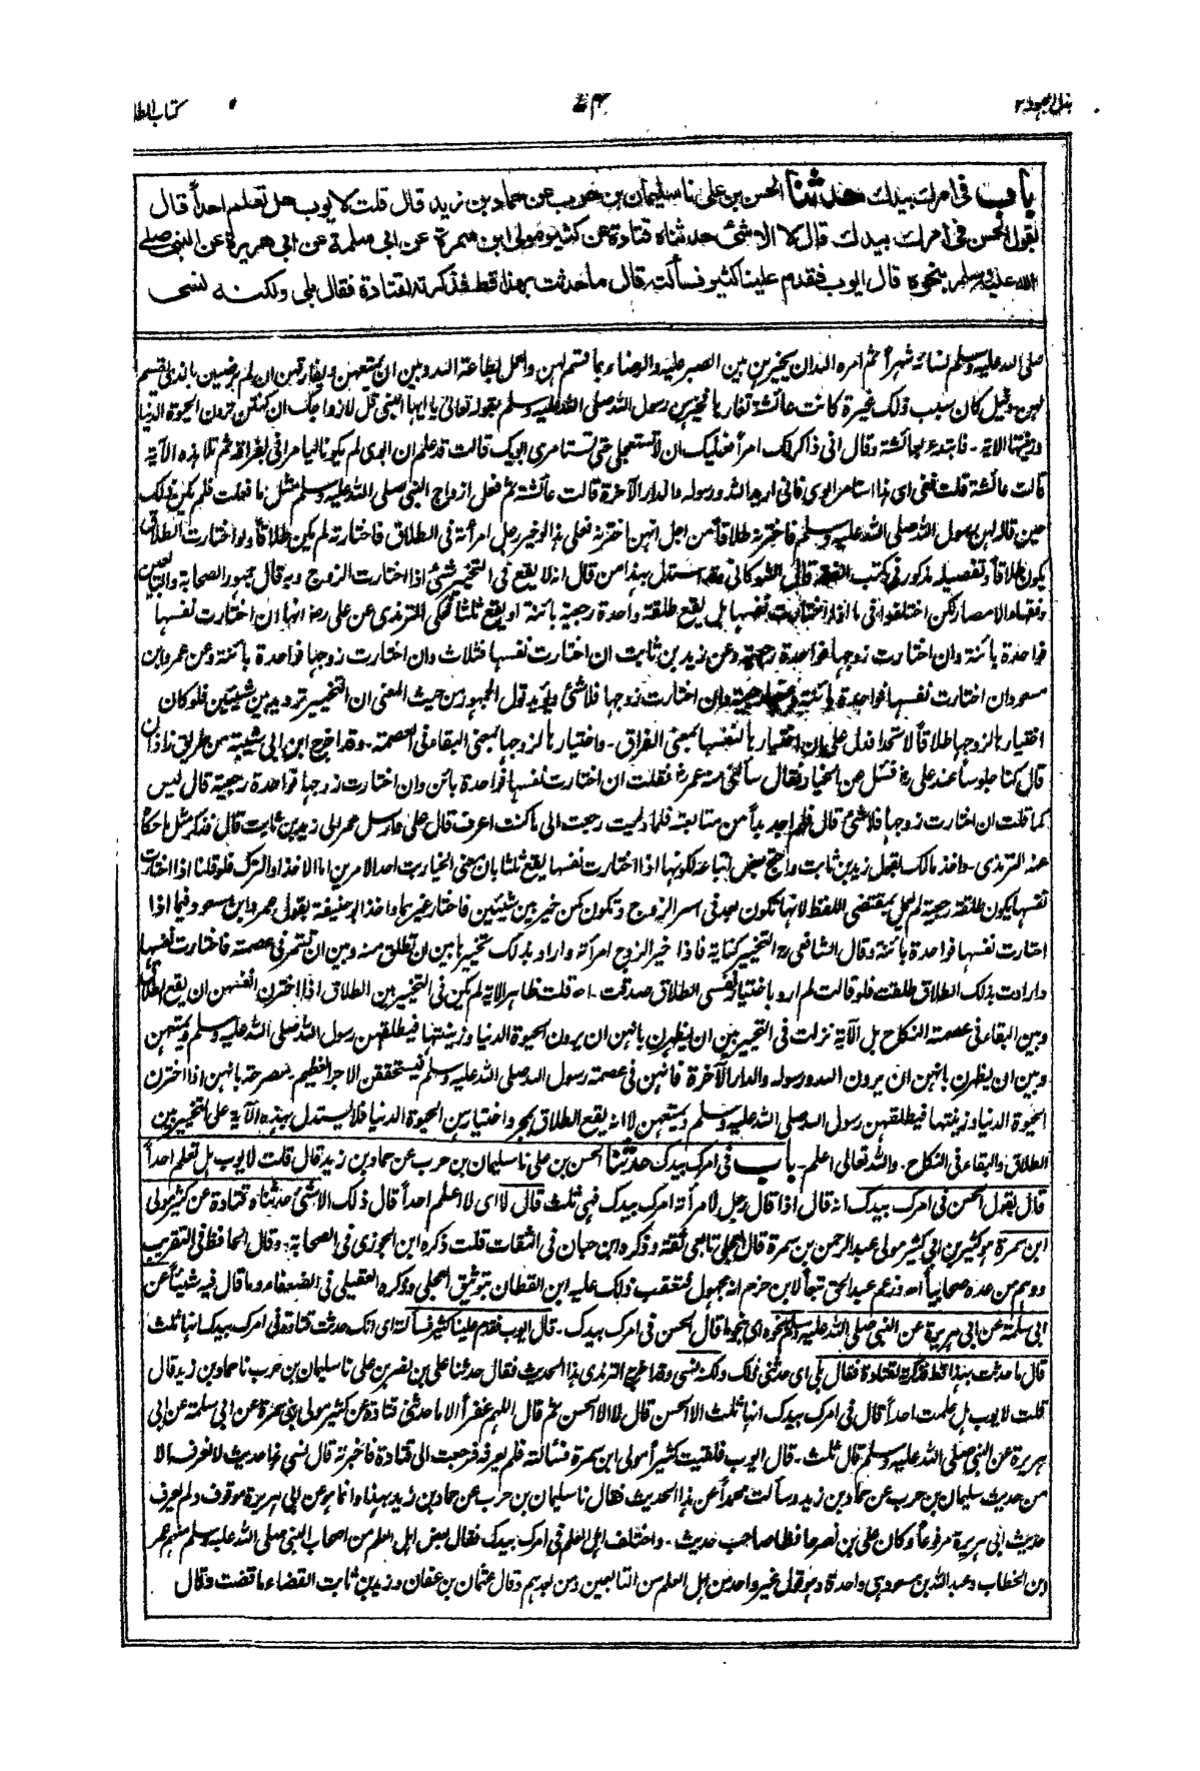 بذل المجهود ٢
كتاب الطلا
باب فى امرك بيدك حدثنا الحسن بن على نا سليمان بن حرب عن حماد بن زيد قال قلت لايوب هل تعلم احداً قال
بقول الحسن فى امرك بيدك قال لا الا شئ حدثناه قتادة عن كثير مولى ابن سمرة عن ابى سلمة عن ابى هريرة عن النبى صلى
الله عليه وسلم بنحوه قال ايوب فقدم علينا كثير فسألته قال ما حدثت بهذا قط فذكرته لقتادة فقال بلى ولكنه نسى
صلى الله عليه وسلم نسائه شهراً ثم امره الله ان يخيرهن بين الصبر عليه والرضاء بما قسم لهن والعمل بطاعة الله وبين ان يمتعهن ويفارقهن ان لم يرضين بالذى يقسم
لهن وقيل كان سبب ذلك غيرة كانت عائشة تغارها فخيرهن رسول الله صلى الله عليه وسلم بقوله تعالى يا ايها النبى قل لازواجك ان كنتن تردن الحيوة الدنيا
وزينتها الاية - فابتدء بعائشة وقال انى ذاكر لك امراً فعليك ان لا تستعجلى حتى تستامرى ابويك قالت قد علم ان ابوى لم يكونا ليامرانى بفراقه ثم تلا هذه الآية
قالت عائشة قلت ففى اى هذا استامر ابوى فانى اريد الله ورسوله والدار الآخرة قالت عائشة ثم فعل ازواج النبى صلى الله عليه وسلم مثل ما فعلت فلم يكن ذلك
حين قاله لهن رسول الله صلى الله عليه وسلم فاخترنه طلاقاً من اجل انهن اخترنه فعلى هذا لو خير رجل امرأته فى الطلاق فاختارته لم يكن طلاقاً ولو اختارت الطلاق
يكون طلاقاً وتفصيله مذكور فى كتب الفقه قال الشوكانى وقد استدل بهذا من قال انه لا يقع فى التخيير شئ اذا اختارت الزوج وبه قال جمهور الصحابة والتابعين
وفقهاء الامصار لكن اختلفوا فى ما اذا اختارت نفسها هل يقع طلقة واحدة رجعية او بائنة او يقع ثلثا فحكى الترمذى عن على رض انها ان اختارت نفسها
فواحدة بائنة وان اختارت زوجها فواحدة رجعية وعن زيد بن ثابت ان اختارت نفسها فثلاث وان اختارت زوجها فواحدة بائنة وعن عمر وابن
مسعود ان اختارت نفسها فواحدة بائنة وعنهما رجعية وان اختارت زوجها فلا شئ ويؤيد قول الجمهور من حيث المعنى ان التخيير ترديد بين شيئين فلو كان
اختيارها لزوجها طلاقاً لاتحدا فدل على ان اختيارها لنفسها بمعنى الفراق - واختيارها لزوجها بمعنى البقاء فى العصمة - وقد اخرج ابن ابى شيبة من طريق زاذان
قال كنا جلوساً عند على رض فسئل عن الخيار فقال سألنى عنه عمر رض فقلت ان اختارت نفسها فواحدة بائن وان اختارت زوجها فواحدة رجعية قال ليس
كما قلت ان اختارت زوجها فلا شئ قال فلم اجد بداً من متابعته فلما وليت رجعت الى ما كنت اعرف قال على وارسل عمر الى زيد بن ثابت قال فذكر مثل ما حكاه
عنه الترمذى - واخذ مالك بقول زيد بن ثابت واحتج بعض اتباعه لكونها اذا اختارت نفسها يقع ثلثا بان معنى الخيار بت احد الامرين اما الاخذ او الترك فلو قلنا اذا اختارت
نفسها يكون طلقة رجعية لم يعمل بمقتضى اللفظ لانها تكون بعد فى اسر الزوج وتكون كمن خير بين شيئين فاختار غيرهما واخذ ابو حنيفة بقول عمر وابن مسعود فيما اذا
اختارت نفسها فواحدة بائنة وقال الشافعى رح التخيير كناية فاذا خير الزوج امرأته واراد بذلك تخييرها بين ان تطلق منه وبين ان تستمر فى عصمته فاختارت نفسها
وارادت بذلك الطلاق طلقت فلو قالت لم ارد باختيار نفسى الطلاق صدقت - اه قلت ظاهر الاية لم يكن فى التخيير بين الطلاق اذا اخترن انفسهن ان يقع الطلاق
وبين البقاء فى عصمة النكاح بل الآية نزلت فى التخيير بين ان يظهرن بانهن ان يردن الحيوة الدنيا وزينتها فيطلقهن رسول الله صلى الله عليه وسلم ويمتعهن
وبين ان يظهرن بانهن ان يردن الله ورسوله والدار الآخرة فانهن فى عصمة رسول الله صلى الله عليه وسلم فيستحققن الاجر العظيم مصرحة بانهن اذا اخترن
الحيوة الدنيا وزينتها فيطلقهن رسول الله صلى الله عليه وسلم ويمتعهن لا انه يقع الطلاق بمجرد اختيارهن الحيوة الدنيا فلا يستدل بهذه الآية على التخيير بين
الطلاق والبقاء فى النكاح - والله تعالى اعلم - باب فى امرك بيدك حدثنا الحسن بن على نا سليمان بن حرب عن حماد بن زيد قال قلت لايوب هل تعلم احداً
قال بقول الحسن فى امرك بيدك انه قال اذا قال رجل لامرأته امرك بيدك فهى ثلث قال لا اى لا اعلم احداً قال ذلك الا شئ حدثناه قتادة عن كثير مولى
ابن سمرة هو كثير بن ابى كثير مولى عبد الرحمن بن سمرة قال العجلى تابعى ثقة وذكره ابن حبان فى الثقات قلت ذكره ابن الجوزى فى الصحابة - وقال الحافظ فى التقريب
ووهم من عده صحابياً اه وزعم عبد الحق تبعاً لابن حزم انه مجهول فتعقب ذلك عليه ابن القطان بتوثيق العجلى وذكره العقيلى فى الضعفاء وما قال فيه شيئاً عن
ابى سلمة عن ابى هريرة عن النبى صلى الله عليه وسلم بنحوه اى بنحو ما قال الحسن فى امرك بيدك - قال ايوب فقدم علينا كثير فسألته اى انك حدثت قتادة فى امرك بيدك انها ثلث
قال ما حدثت بهذا قط فذكرته لقتادة فقال بلى اى حدثنى ذلك ولكنه نسى وقد اخرج الترمذى هذا الحديث فقال حدثنا على بن نصر بن على نا سليمان بن حرب نا حماد بن زيد قال
قلت لايوب هل علمت احداً قال فى امرك بيدك انها ثلث الا الحسن قال لا الا الحسن ثم قال اللهم غفراً الا ما حدثنى قتادة عن كثير مولى بنى سمرة عن ابى سلمة عن ابى
هريرة عن النبى صلى الله عليه وسلم قال ثلث - قال ايوب فلقيت كثيراً مولى ابن سمرة فسألته فلم يعرفه فرجعت الى قتادة فاخبرته قال نسى هذا حديث لا نعرفه الا
من حديث سليمان بن حرب عن حماد بن زيد وسألت محمداً عن هذا الحديث فقال نا سليمان بن حرب عن حماد بن زيد بهذا وانما هو عن ابى هريرة موقوف ولم يعرف
حديث ابى هريرة مرفوعاً وكان على بن نصر حافظا صاحب حديث - واختلف اهل العلم فى امرك بيدك فقال بعض اهل العلم من اصحاب النبى صلى الله عليه وسلم منهم عمر
بن الخطاب وعبد الله بن مسعود هى واحدة وهو قول غير واحد من اهل العلم من التابعين ومن بعدهم وقال عثمان بن عفان وزيد بن ثابت القضاء ما قضت وقال